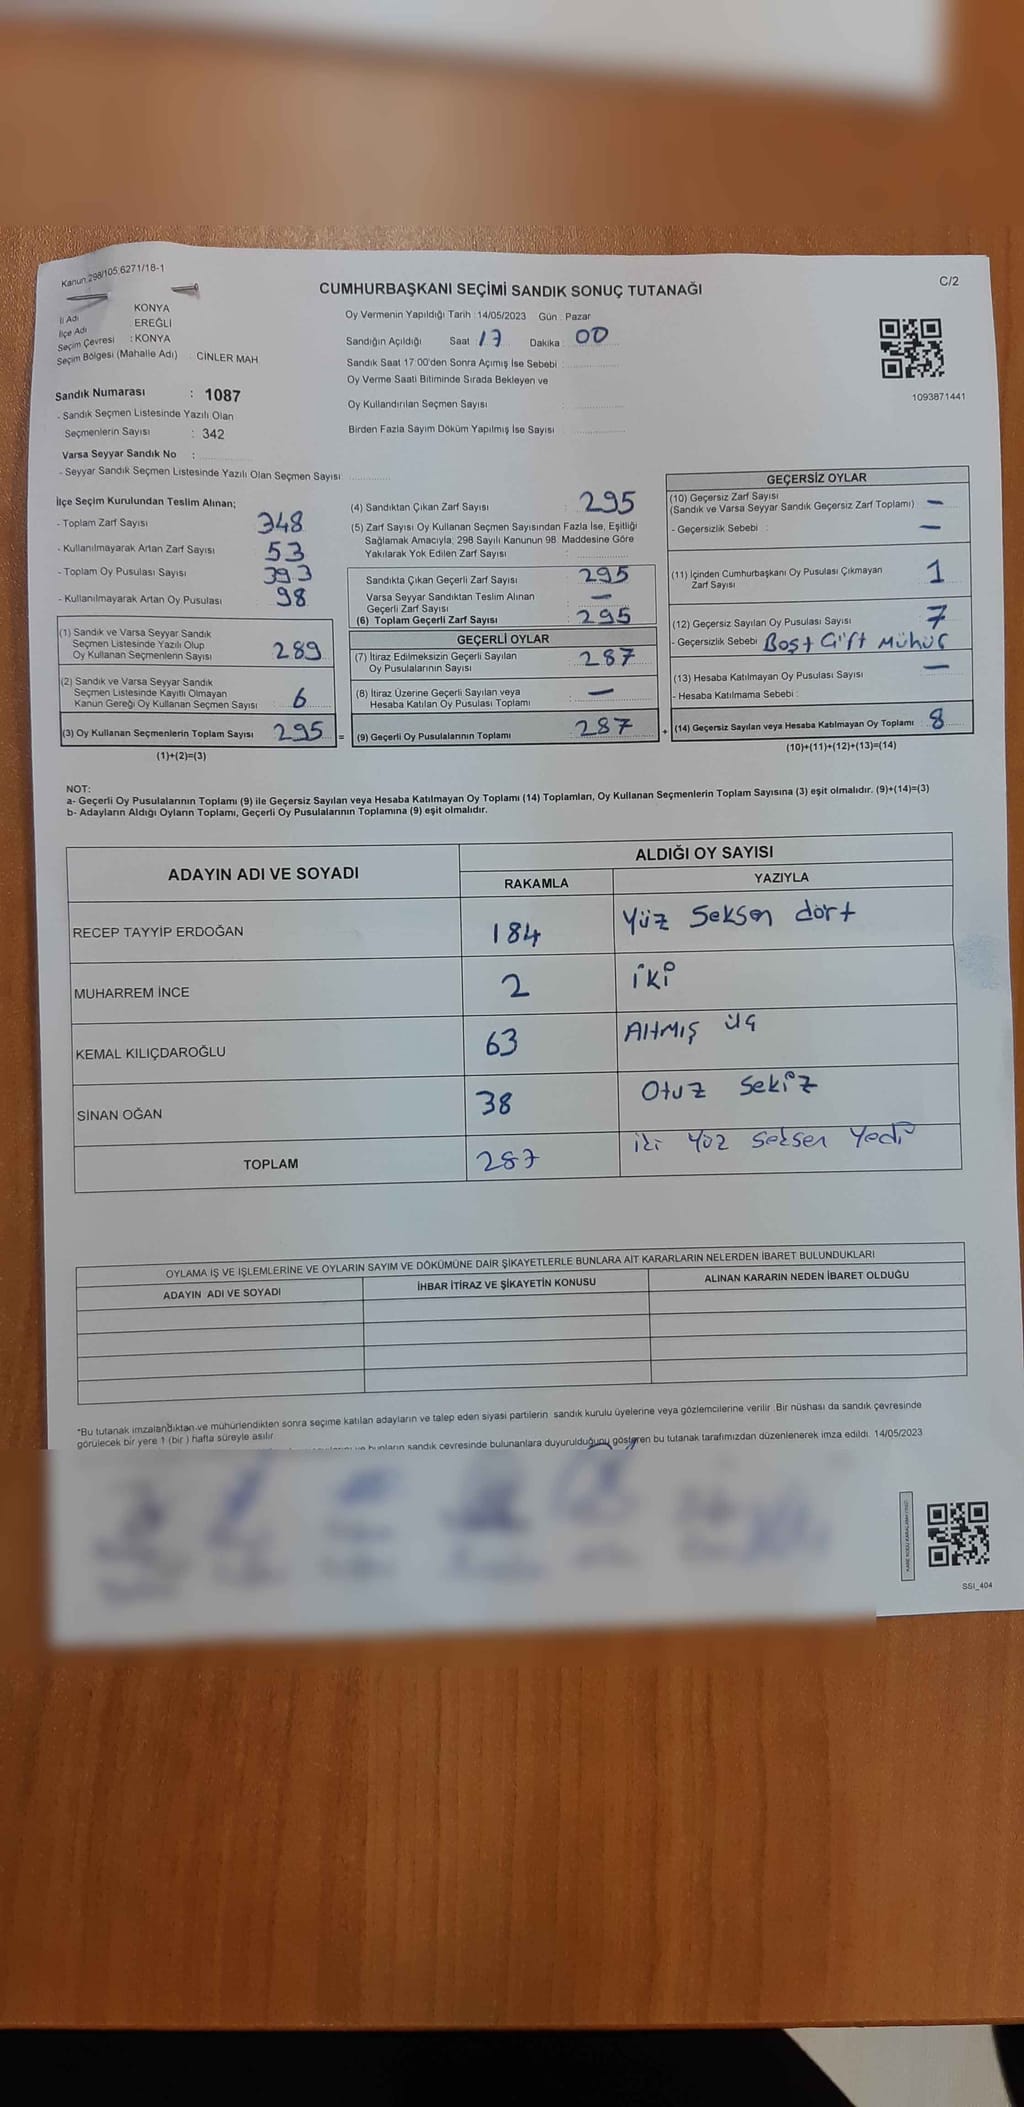 Kanun:298/105,6271/18-1
C/2
CUMHURBAŞKANI SEÇİMİ SANDIK SONUÇ TUTANAĞI
İl Adı KONYA
İlçe Adı EREĞLİ
Seçim Çevresi : KONYA
Seçim Bölgesi (Mahalle Adı) : CİNLER MAH.
Oy Vermenin Yapıldığı Tarih :14/05/2023 Gün : Pazar
Sandığın Açıldığı Saat 17 Dakika : 00
Sandık Saat 17:00'den Sonra Açımış İse Sebebi :
Oy Verme Saati Bitiminde Sırada Bekleyen ve
Oy Kullandırılan Seçmen Sayısı :
Birden Fazla Sayım Döküm Yapılmış İse Sayısı :
1093871441
Sandık Numarası : 1087
- Sandık Seçmen Listesinde Yazılı Olan
Seçmenlerin Sayısı : 342
Varsa Seyyar Sandık No :
- Seyyar Sandık Seçmen Listesinde Yazılı Olan Seçmen Sayısı:
İlçe Seçim Kurulundan Teslim Alınan;
- Toplam Zarf Sayısı 348
- Kullanılmayarak Artan Zarf Sayısı 53
- Toplam Oy Pusulası Sayısı 393
- Kullanılmayarak Artan Oy Pusulası 98
(1) Sandık ve Varsa Seyyar Sandık
Seçmen Listesinde Yazılı Olup
Oy Kullanan Seçmenlerin Sayısı : 289
(2) Sandık ve Varsa Seyyar Sandık
Seçmen Listesinde Kayıtlı Olmayan
Kanun Gereği Oy Kullanan Seçmen Sayısı : 6
(3) Oy Kullanan Seçmenlerin Toplam Sayısı : 295 =
(1)+(2)=(3)
(4) Sandıktan Çıkan Zarf Sayısı : 295
(5) Zarf Sayısı Oy Kullanan Seçmen Sayısından Fazla İse, Eşitliği
Sağlamak Amacıyla, 298 Sayılı Kanunun 98. Maddesine Göre
Yakılarak Yok Edilen Zarf Sayısı :
Sandıkta Çıkan Geçerli Zarf Sayısı : 295
Varsa Seyyar Sandıktan Teslim Alınan
Geçerli Zarf Sayısı : —
(6) Toplam Geçerli Zarf Sayısı : 295
GEÇERLİ OYLAR
(7) İtiraz Edilmeksizin Geçerli Sayılan
Oy Pusulalarının Sayısı : 287
(8) İtiraz Üzerine Geçerli Sayılan veya
Hesaba Katılan Oy Pusulası Toplamı : —
(9) Geçerli Oy Pusulalarının Toplamı : 287 +
GEÇERSİZ OYLAR
(10) Geçersiz Zarf Sayısı
(Sandık ve Varsa Seyyar Sandık Geçersiz Zarf Toplamı) : —
- Geçersizlik Sebebi : —
(11) İçinden Cumhurbaşkanı Oy Pusulası Çıkmayan
Zarf Sayısı 1
(12) Geçersiz Sayılan Oy Pusulası Sayısı : 7
- Geçersizlik Sebebi : Boş+Çift Mühür
(13) Hesaba Katılmayan Oy Pusulası Sayısı : —
- Hesaba Katılmama Sebebi :
(14) Geçersiz Sayılan veya Hesaba Katılmayan Oy Toplamı : 8
(10)+(11)+(12)+(13)=(14)
NOT:
a- Geçerli Oy Pusulalarının Toplamı (9) ile Geçersiz Sayılan veya Hesaba Katılmayan Oy Toplamı (14) Toplamları, Oy Kullanan Seçmenlerin Toplam Sayısına (3) eşit olmalıdır. (9)+(14)=(3)
b- Adayların Aldığı Oyların Toplamı, Geçerli Oy Pusulalarının Toplamına (9) eşit olmalıdır.
ADAYIN ADI VE SOYADI ALDIĞI OY SAYISI
RAKAMLA YAZIYLA
RECEP TAYYİP ERDOĞAN 184 Yüz Seksen dört
MUHARREM İNCE 2 iki
KEMAL KILIÇDAROĞLU 63 Altmış üç
SİNAN OĞAN 38 Otuz Sekiz
TOPLAM 287 iki Yüz seksen Yedi
OYLAMA İŞ VE İŞLEMLERİNE VE OYLARIN SAYIM VE DÖKÜMÜNE DAİR ŞİKAYETLERLE BUNLARA AİT KARARLARIN NELERDEN İBARET BULUNDUKLARI
ADAYIN ADI VE SOYADI İHBAR İTİRAZ VE ŞİKAYETİN KONUSU ALINAN KARARIN NEDEN İBARET OLDUĞU
*Bu tutanak imzalandıktan ve mühürlendikten sonra seçime katılan adayların ve talep eden siyasi partilerin sandık kurulu üyelerine veya gözlemcilerine verilir. Bir nüshası da sandık çevresinde
görülecek bir yere 1 (bir ) hafta süreyle asılır.
bunların sandık çevresinde bulunanlara duyurulduğunu gösteren bu tutanak tarafımızdan düzenlenerek imza edildi. 14/05/2023
SSI_404